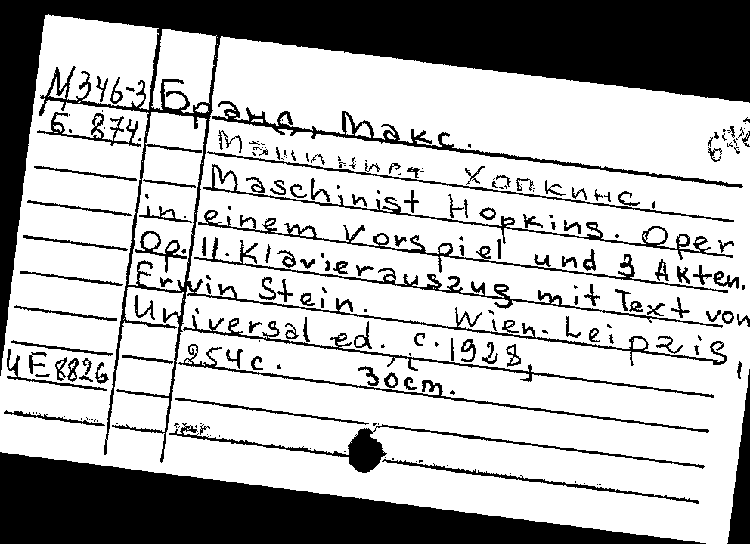 М346-3 Бранд, Макс.
Б. 874.
Машинист Хопкинс.
Maschinist Hopkins. Oper
in einem Vorspiel und 3 Akten.
Op. 11. Klavierauszug mit Text von
Erwin Stein. Wien-Leipzig,
Universal ed. c. 1928,
254 с. 30 cm.
UE 8826